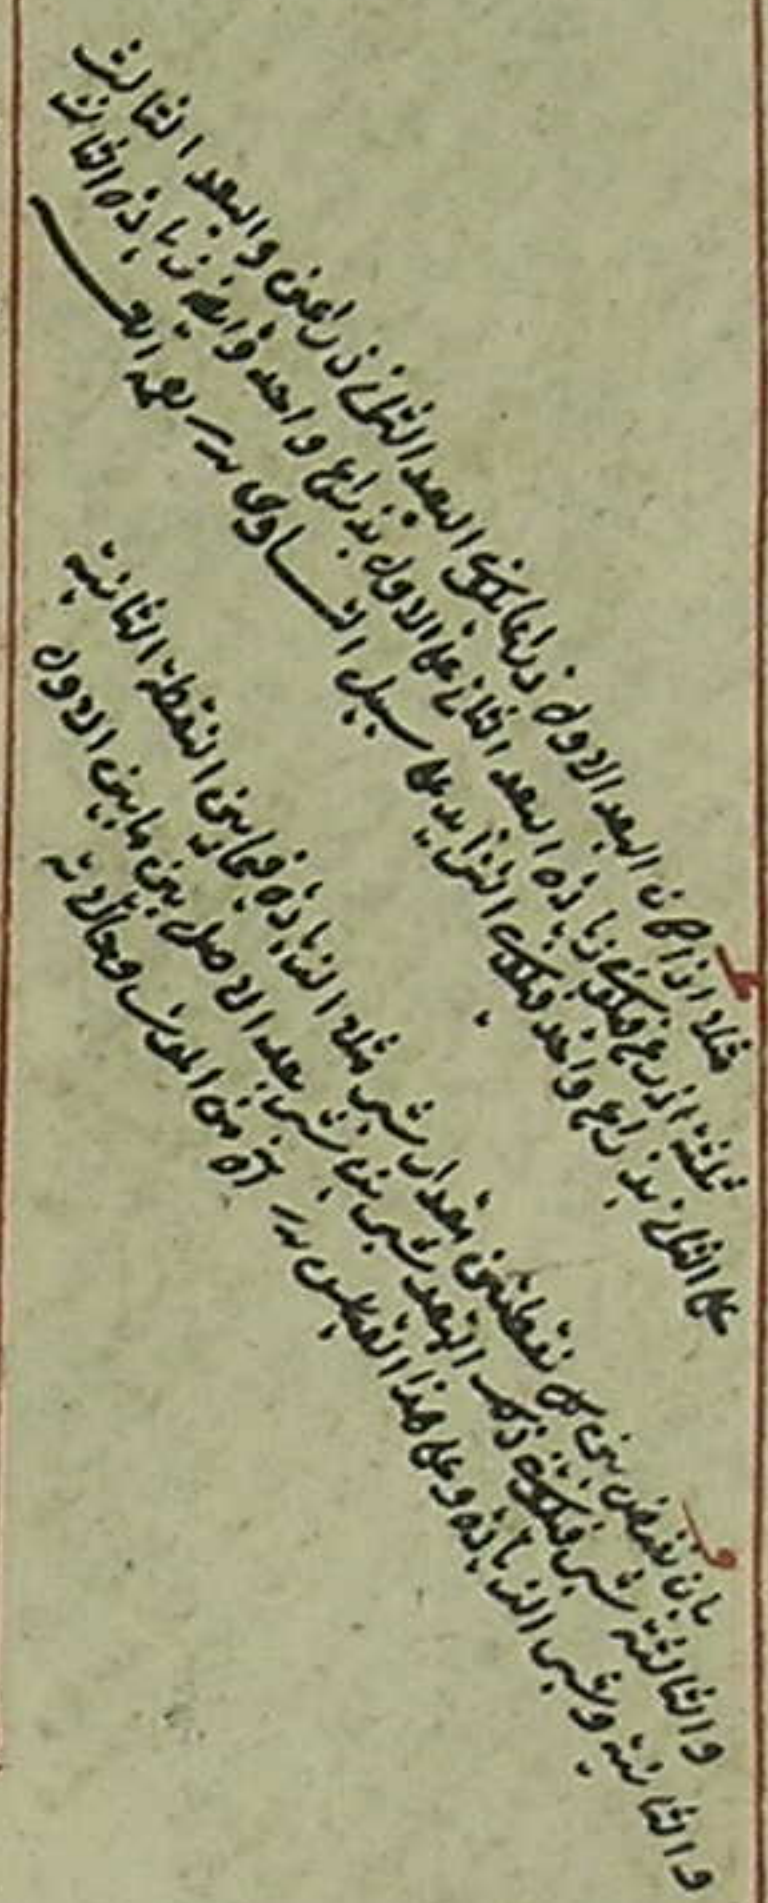 مثلا اذا فرض البعد الاول ذراعا يكون البعد الثانى ذراعين والبعد الثالث
ثلثة اذرع فيكون زيادة البعد الثانى على الاول بذراع واحد وايض زيادة الثالث
على الثانى بذراع واحد فيكون التزايد على سبيل التساوى
بان نفرض بين كل نقطتين مقدار شبر مثلا الزيادة فيما بين النقطة الثانية
والثالثة شبر فيكون ذلك البعد شبرين شبر بعد الاصل بين ما بين الاول
والثانية وشبر الزيادة وعلى هذا القياس